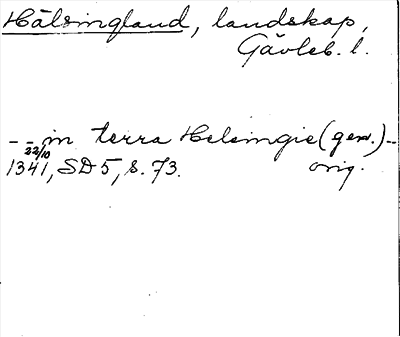 Hälsingland, landskap,
Gävleb. l.
- - in terra Helsingie (gen.) - -
22/10
1341, SD 5, s. 73. orig.